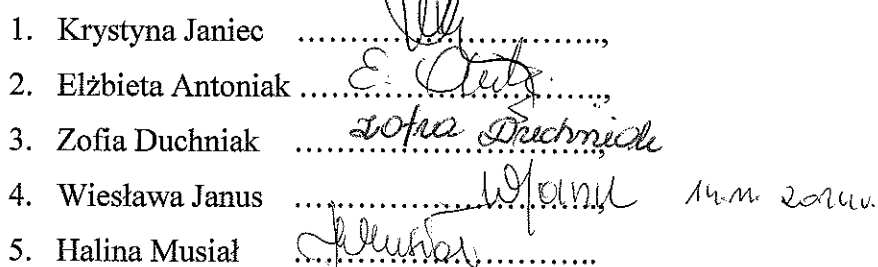 1. Krystyna Janiec ..............................,
2. Elżbieta Antoniak E. ..............................,
3. Zofia Duchniak Zofia Duchniak ..............................,
4. Wiesława Janus WJanus ..............................,
5. Halina Musiał HMusiał ..............................